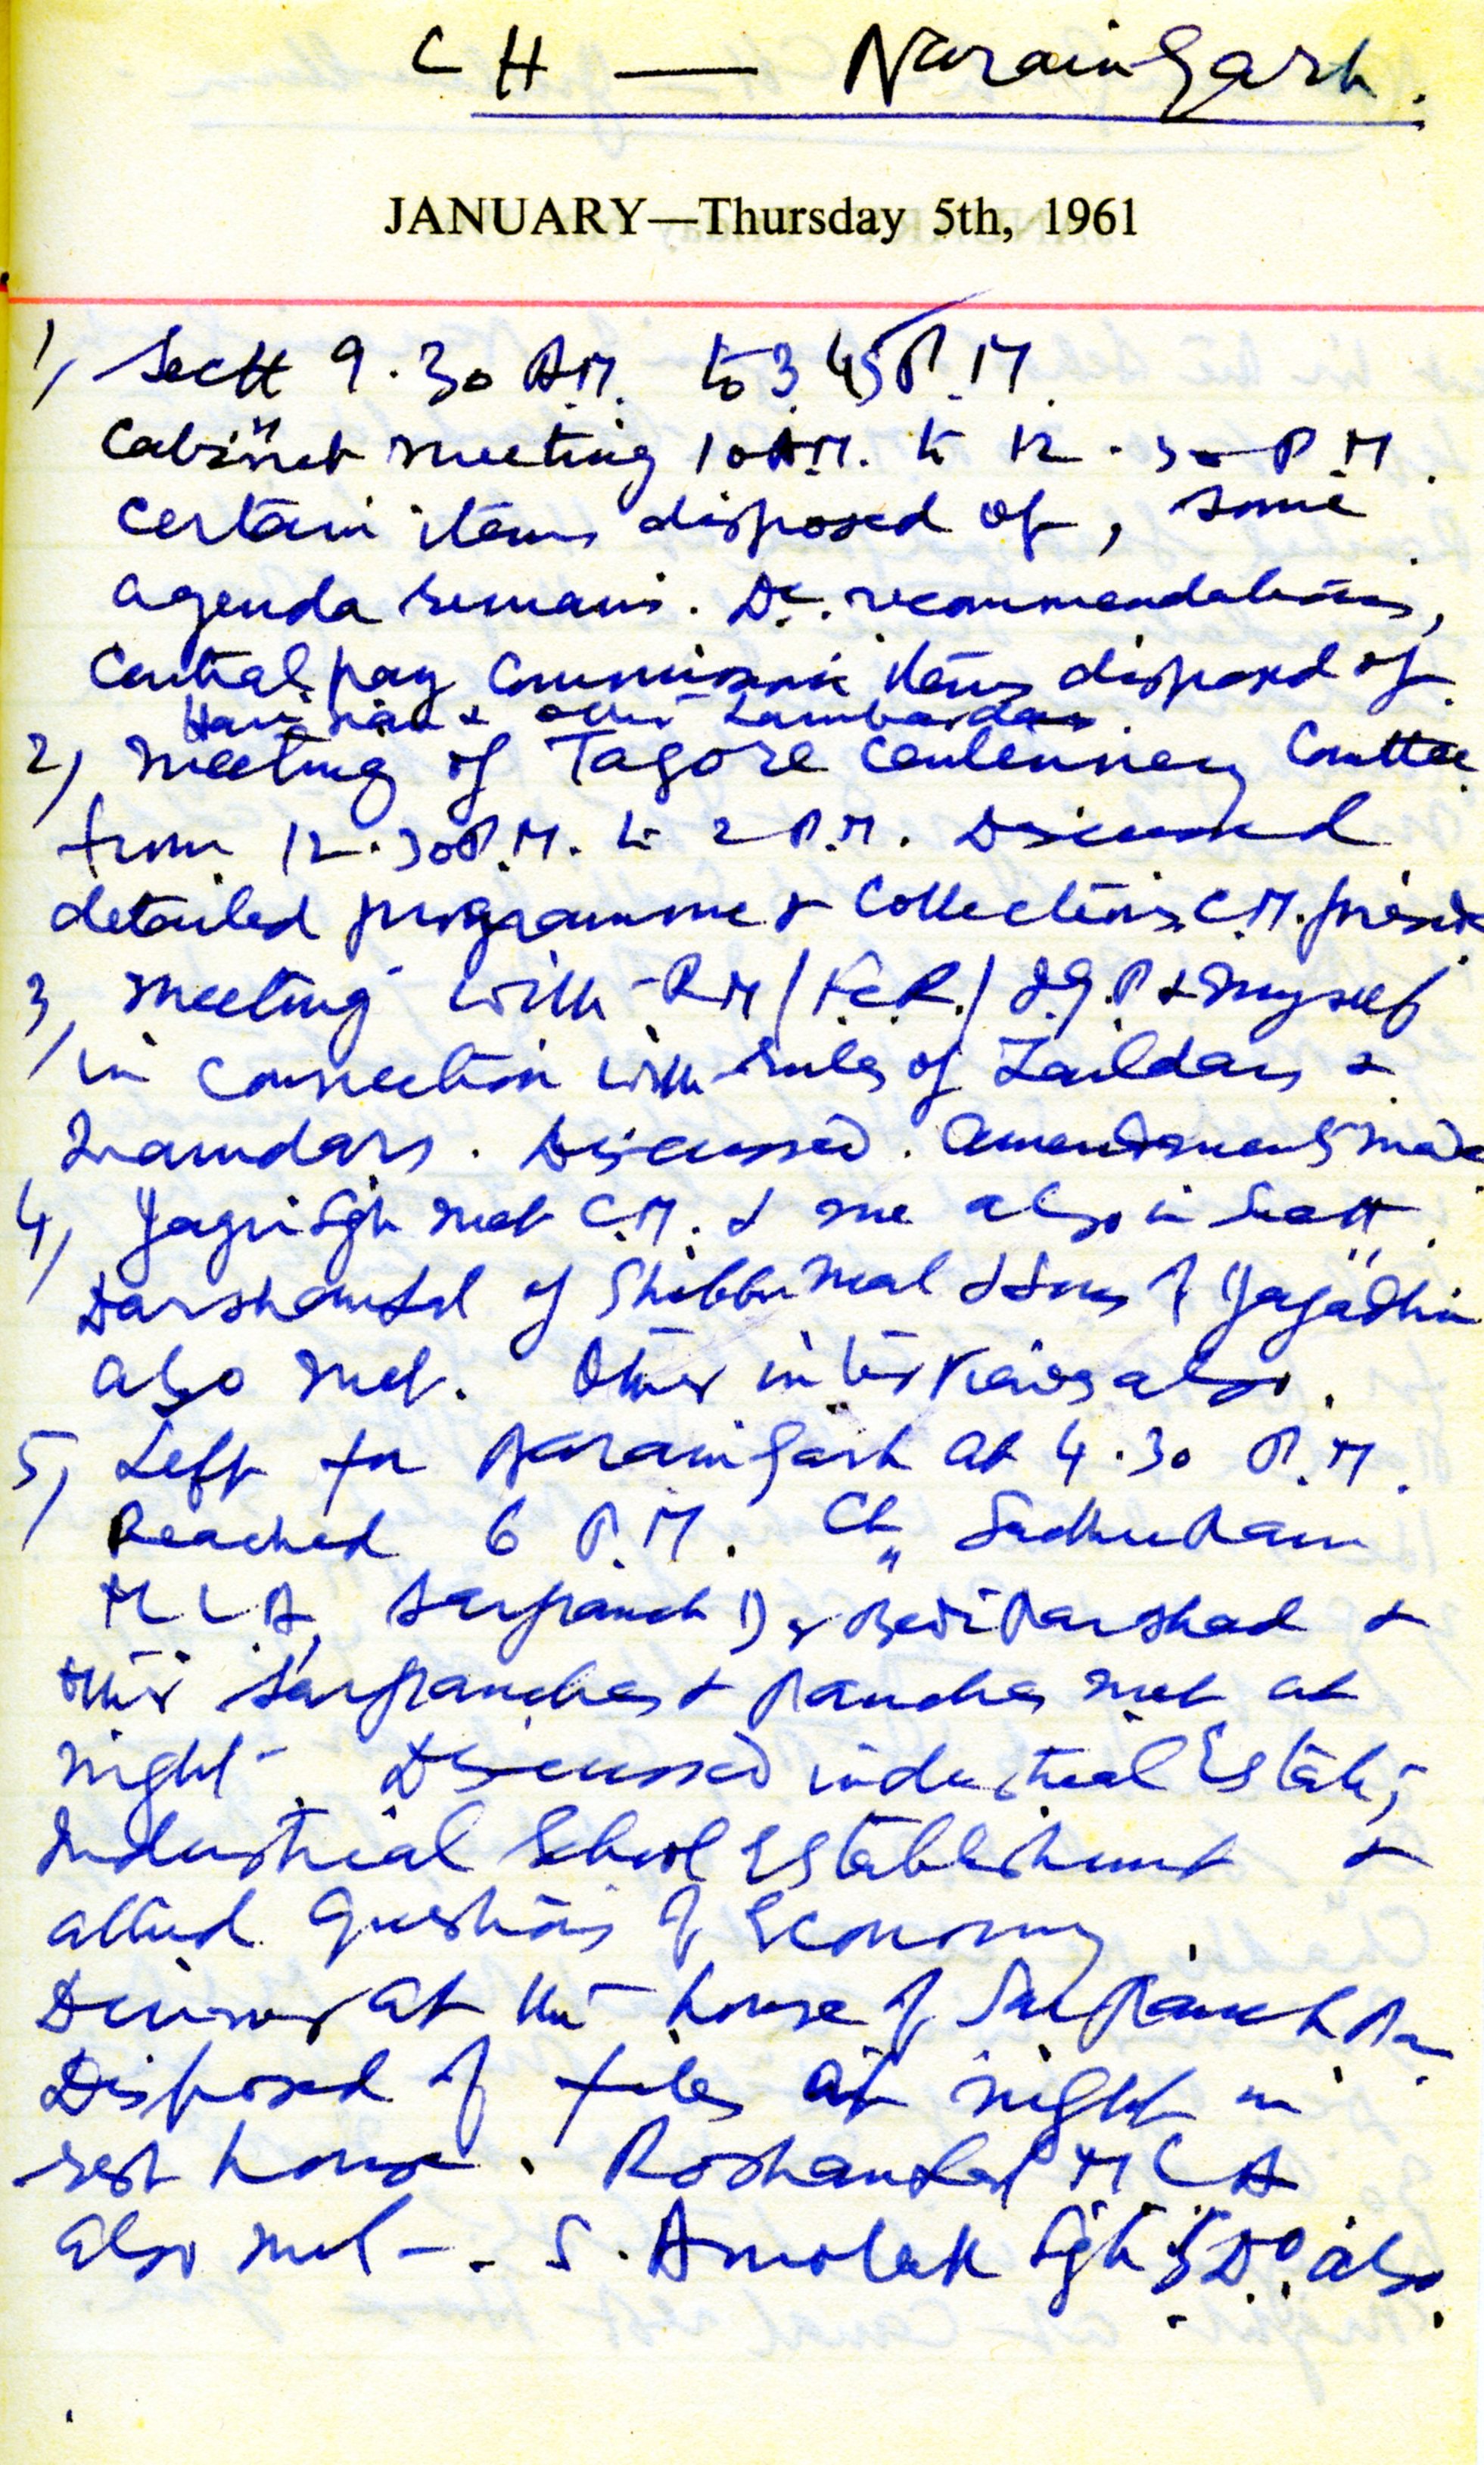 CH — Naraingarh.
JANUARY—Thursday 5th, 1961
1, Sectt 9.30 A.M. to 3.45 P.M.
Cabinet meeting 10 A.M. to 12.30 P.M.
Certain items disposed of, some
agenda remains. recommendations,
Central pay Commission items disposed of
Harijan & other Lambardars.
2, Meeting of Tagore Centennery Comttee
from 12.30 P.M. to 2 P.M. Discussed
detailed programme & Collections. C.M.
3, Meeting with R.M/F.C.R./I.G.P & myself
in connection with rules of Zaildars &
Inamdars. Discussed. Amendments made
4, Sgh met C.M. & me also in Sectt.
Darshanlal of Shibbumal & Sons of Jagadhri
also met. Other interviews also.
5, Left for Naraingarh at 4.30 P.M.
Reached 6 P.M. Ch Sadhuram
MLA, Sarpanch Dr Parshad &
other Sarpanches & Panches met at
night. Discussed industrial Estate,
Industrial School Establishment &
allied Questions of Economy
Dinner at the house of Sarpanch
Disposed of files at night in
rest house. Roshanlal MLA
also met -. S. Amolak Sgh SDO also.